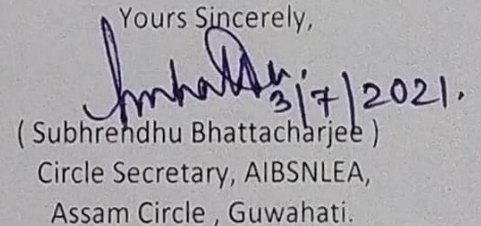 Yours Sincerely,
3/7/2021.
( Subhrendhu Bhattacharjee )
Circle Secretary, AIBSNLEA,
Assam Circle , Guwahati.